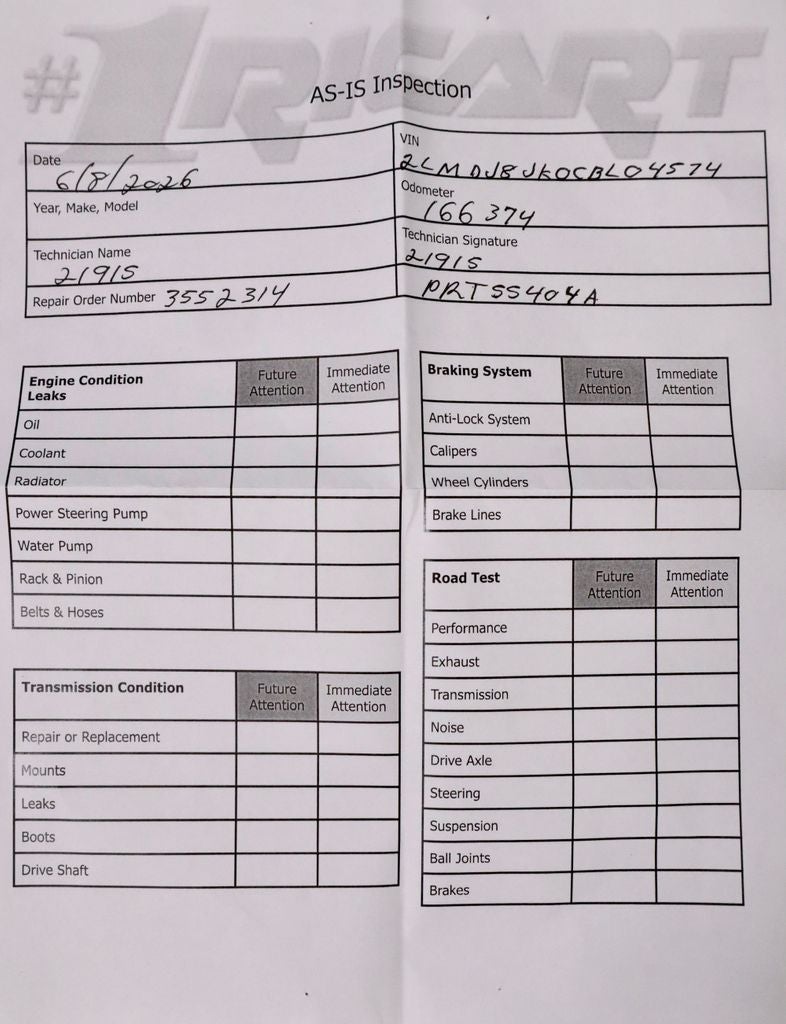 #1 RICART
AS-IS Inspection
Date 6/8/2026
VIN 2LMDJ8JK0CBL04574
Year, Make, Model
Odometer 166374
Technician Name 21915
Technician Signature 21915
Repair Order Number 3552314
PRTSS404A
Engine Condition Leaks Future Attention Immediate Attention
Oil
Coolant
Radiator
Power Steering Pump
Water Pump
Rack & Pinion
Belts & Hoses
Transmission Condition Future Attention Immediate Attention
Repair or Replacement
Mounts
Leaks
Boots
Drive Shaft
Braking System Future Attention Immediate Attention
Anti-Lock System
Calipers
Wheel Cylinders
Brake Lines
Road Test Future Attention Immediate Attention
Performance
Exhaust
Transmission
Noise
Drive Axle
Steering
Suspension
Ball Joints
Brakes